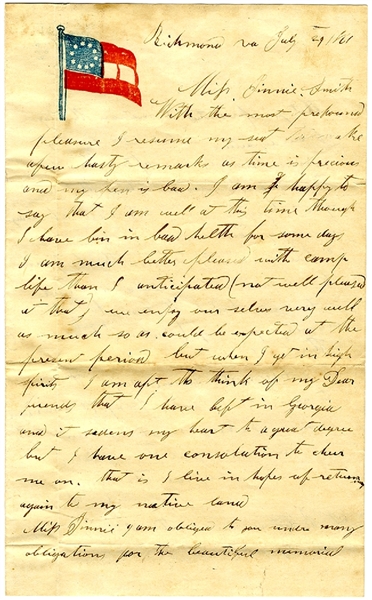 Richmond va July 1861
Miss Sinnie Smith
With the most profound
pleasure I resume my seat to make
a few hasty remarks as time is precious
and my pen is bad. I am happy to
say that I am well at this time though
I have bin in bad helth for some days
I am much better pleased with camp
life than I anticipated (not well pleased
at that) we enjoy our selves very well
as much so as could be expected at the
present period but when I get in high
spirits I am apt to think of my Dear
friends that I have left in Georgia
and it sadens my heart to a great degree
but I have one consolation to cheer
me on. that is I live in hopes of return
again to my native land
Miss Sinnie I am obliged to you under many
obligations for the beautiful memorial